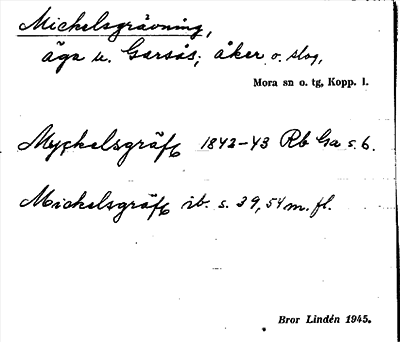 Michelsgrävning,
äga u. Garsås; åker o. slog,
Mora sn o. tg, Kopp. l.
Myckelsgräft 1842-43 Rb Ga s. 6.
Michelsgräft ib. s. 29, 54 m. fl.
Bror Lindén 1945.